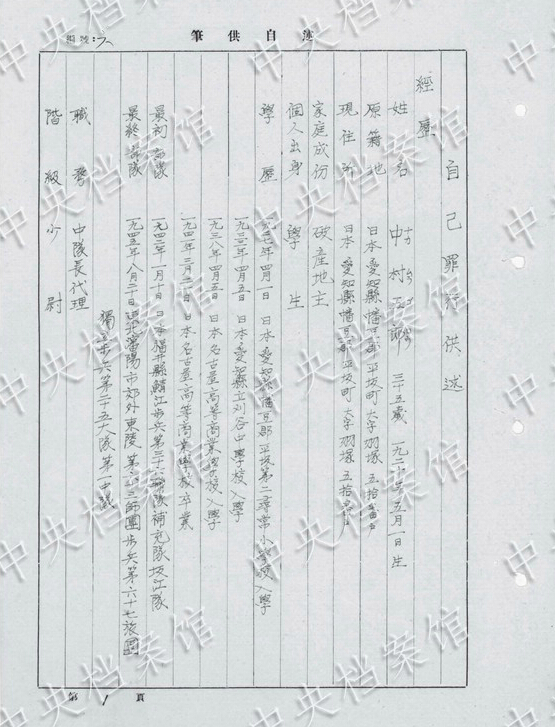 筆供自述
自己罪行供述
經歷
姓名 中村五郎 三十五歲 一九二〇年五月一日生
原籍地 日本愛知縣幡豆郡平坂町大字羽塚五拾番戶
現住所 日本愛知縣幡豆郡平坂町大字羽塚五拾番戶
家庭成份 破產地主
個人出身 學生
學歷 一九二七年四月一日 日本愛知縣幡豆郡平坂第二尋常小學校入學
一九三三年四月五日 日本愛知縣立刈谷中學校入學
一九三八年四月五日 日本名古屋高等商業學校入學
一九四一年三月 日本名古屋高等商業學校卒業
最初部隊 一九四二年二月十日 日本福井縣鯖江步兵第三十六部隊補充隊坂江隊
最終部隊 一九四五年八月二十日 瀋陽市郊外東陵 第六十三師團步兵第六十七旅團
獨立步兵第二十五大隊第一中隊
職務 中隊長代理
階級 少尉
第1頁
中央档案馆